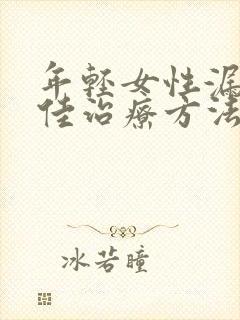 年轻女性漏
佳治療方法
冰若瞳